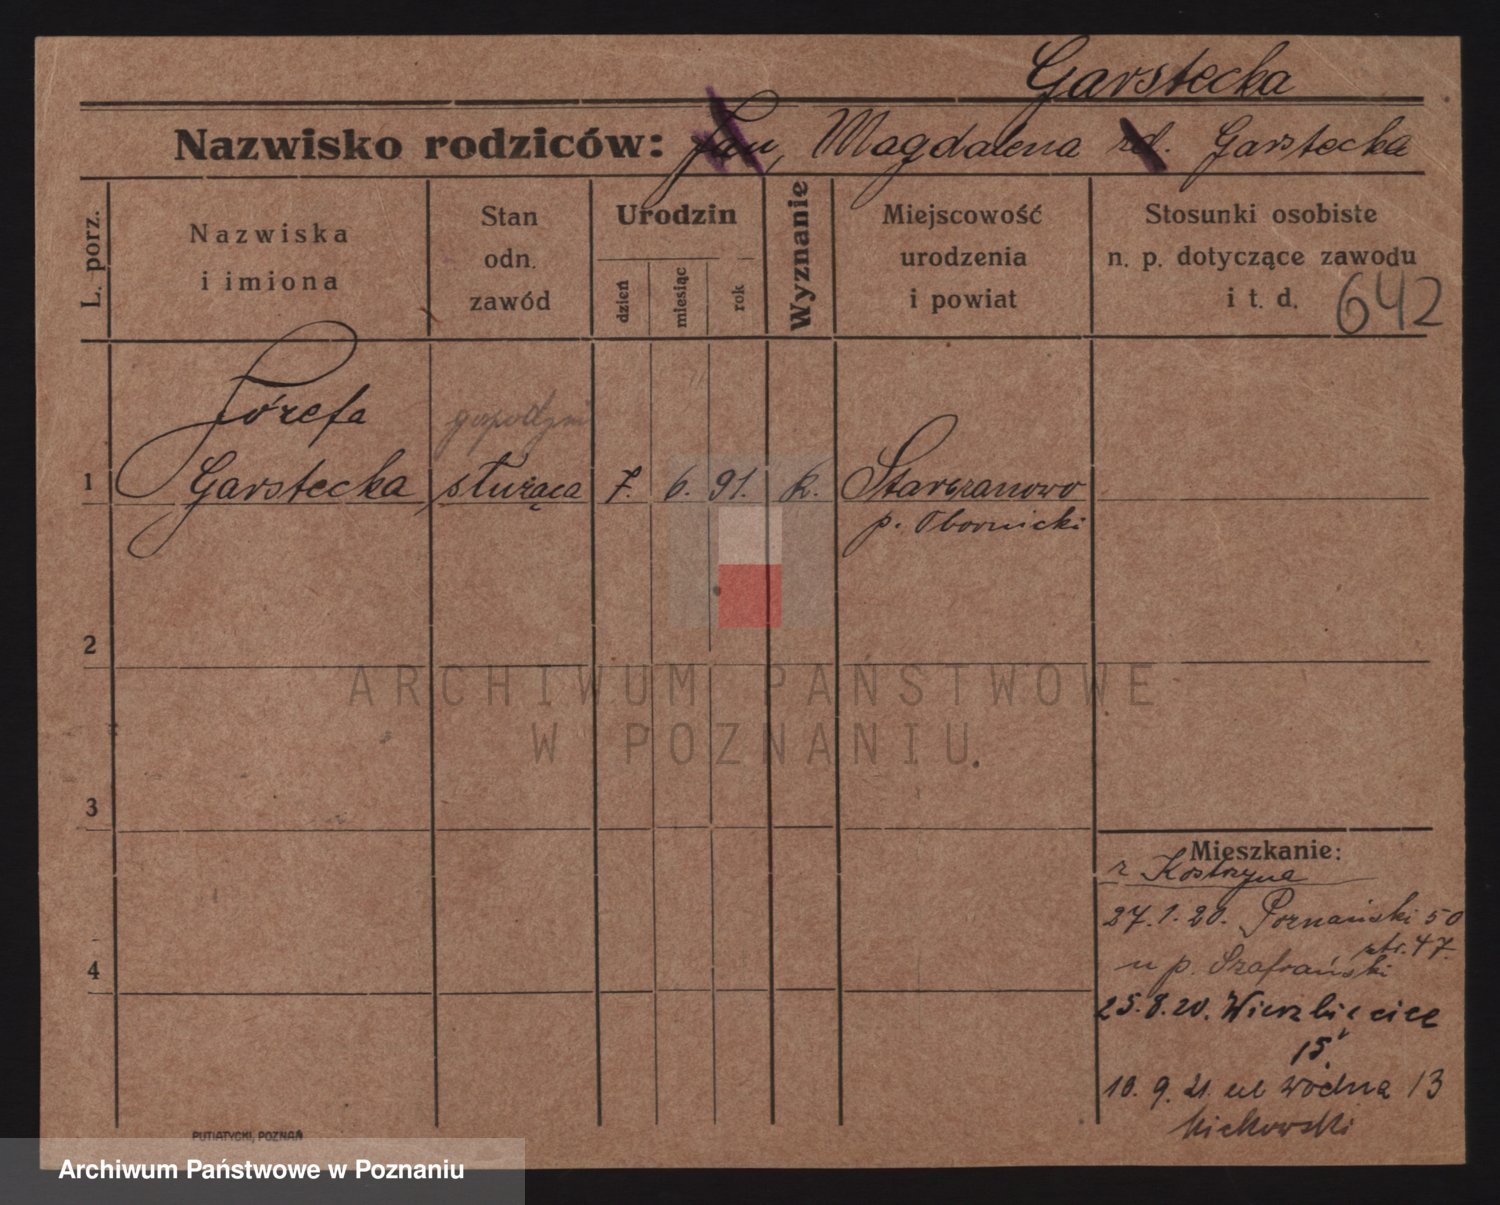 Garstecka
Nazwisko rodziców: Jan, Magdalena rd. Garstecka
L. porz.
Nazwiska
i imiona
Stan
odn.
zawód
Urodzin
dzień
miesiąc
rok
Wyznanie
Miejscowość
urodzenia
i powiat
Stosunki osobiste
n. p. dotyczące zawodu
i t. d.
642
Józefa gospodyni
1 Garstecka służąca 7. 6. 91. k. Starczanowo
p. Obornicki
2
3
4
Mieszkanie:
z Kostrzyna
27.1.20. Poznański 50
str. 47.
u p. Szafrański
25.8.20. Wierzbięcice
15
10. 9. 21. ul wodna 13
PUTIATYCKI, POZNAŃ
ARCHIWUM PAŃSTWOWE
W POZNANIU
Archiwum Państwowe w Poznaniu